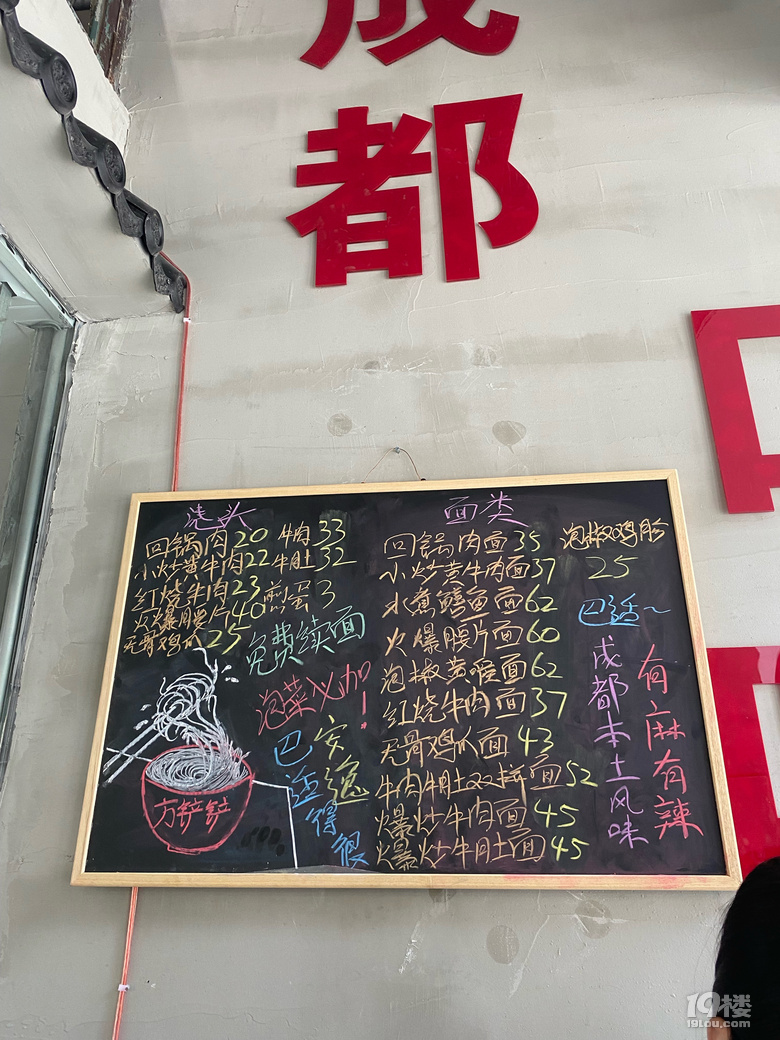 成
都
浇头
回锅肉20 牛肉33
小炒黄牛肉22 牛肚32
红烧牛肉23 煎蛋3
火爆腰片40
无骨鸡爪25
免费续面
泡菜义加!
安逸
巴适得很
方铲铲
面类
回锅肉面35
小炒黄牛肉面37
水煮鳝鱼面62
火爆腰片面60
泡椒黄喉面62
红烧牛肉面37
无骨鸡爪面43
牛肉牛肚双拼面52
爆炒牛肉面45
爆炒牛肚面45
泡椒鸡胗
25
巴适~
成都本土风味
有麻有辣
19楼
19lou.com